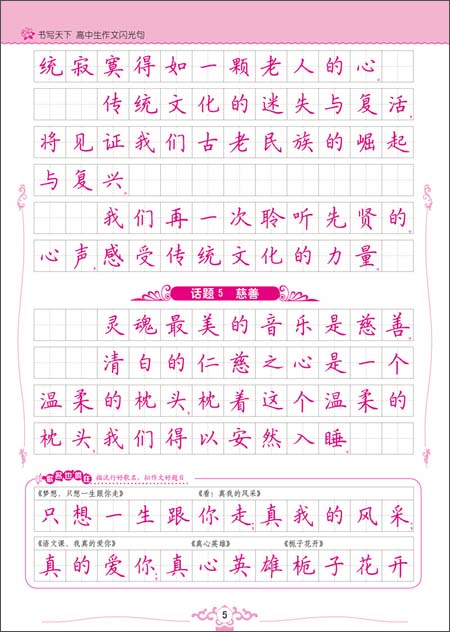 书写天下 高中生作文闪光句
统寂寞得如一颗老人的心
传统文化的迷失与复活,
将见证我们古老民族的崛起
与复兴。
我们再一次聆听先贤的
心声,感受传统文化的力量。
话题5 慈善
灵魂最美的音乐是慈善。
清白的仁慈之心是一个
温柔的枕头,枕着这个温柔的
枕头,我们得以安然入睡。
描流行好歌名,拟作文好题目
《梦想,只想一生跟你走》 《看!真我的风采》
只想一生跟你走,真我的风采,
《语文课,我真的爱你》 《真心英雄》 《栀子花开》
真的爱你,真心英雄 栀子花开
5